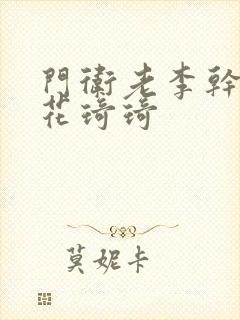 門衛老李幹
花琦琦
莫妮卡